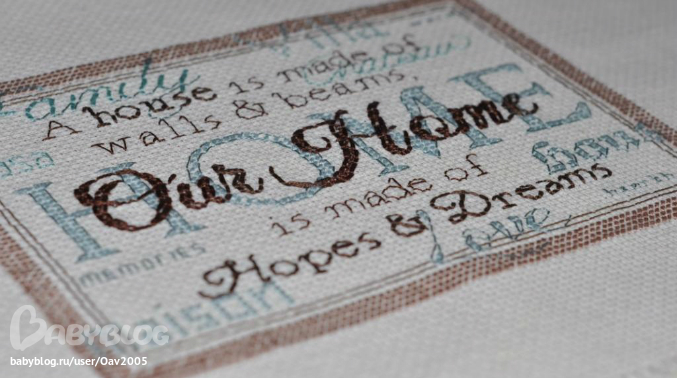 Family
Villa
A house is made of
walls & beams,
casa
HOME
Our Home
is made of
Home
Hopes & Dreams
Love
memories
maison
BABYBLOG
babyblog.ru/user/Oav2005